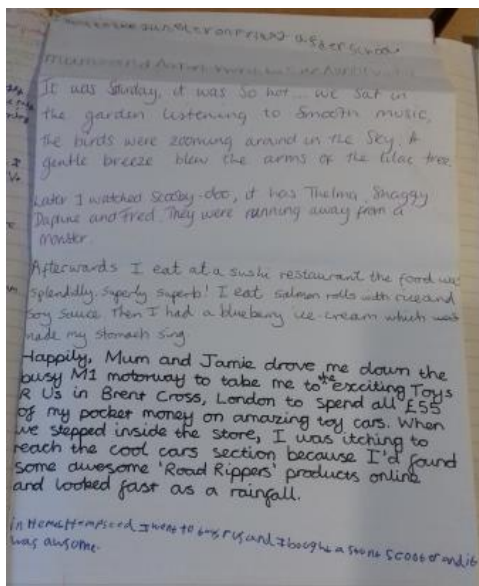 It was Sunday, it was so hot... we sat in
the garden listening to Smooth music,
the birds were zooming around in the sky. A
gentle breeze blew the arms of the lilac tree.
Later I watched Scooby-doo, it has Thelma, Shaggy
Daphne and Fred. They were running away from a
monster.
Afterwards I eat at a sushi restaurant the food was
splendidly superly superb! I eat salmon rolls with rice and
soy sauce. Then I had a blueberry ice-cream which
made my stomach sing.
Happily, Mum and Jamie drove me down the
busy M1 motorway to take me to the exciting Toys
R Us in Brent Cross, London to spend all £55
of my pocket money on amazing toy cars. When
we stepped inside the store, I was itching to
reach the cool cars section because I'd found
some awesome 'Road Rippers' products online
and looked fast as a rainfall.
in I went to toys r us and I bought a stunt scooter and it
was awsome.